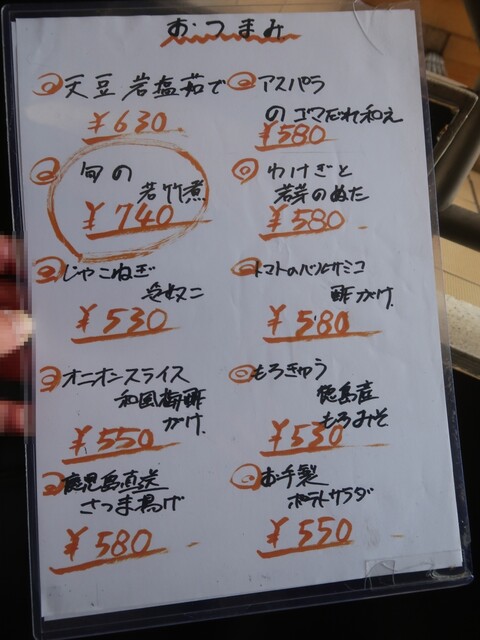 おつまみ
天豆岩塩茹で
¥630
旬の
若竹煮
¥740
じゃこねぎ
やっこ
¥530
オニオンスライス
和風梅酢
がけ
¥550
鹿児島直送
さつま揚げ
¥580
アスパラ
のゴマだれ和え
¥580
わけぎと
若芽のぬた
¥580
トマトのバルサミコ
酢がけ
¥580
もろきゅう
徳島産
もろみそ
¥530
お手製
ポテトサラダ
¥550